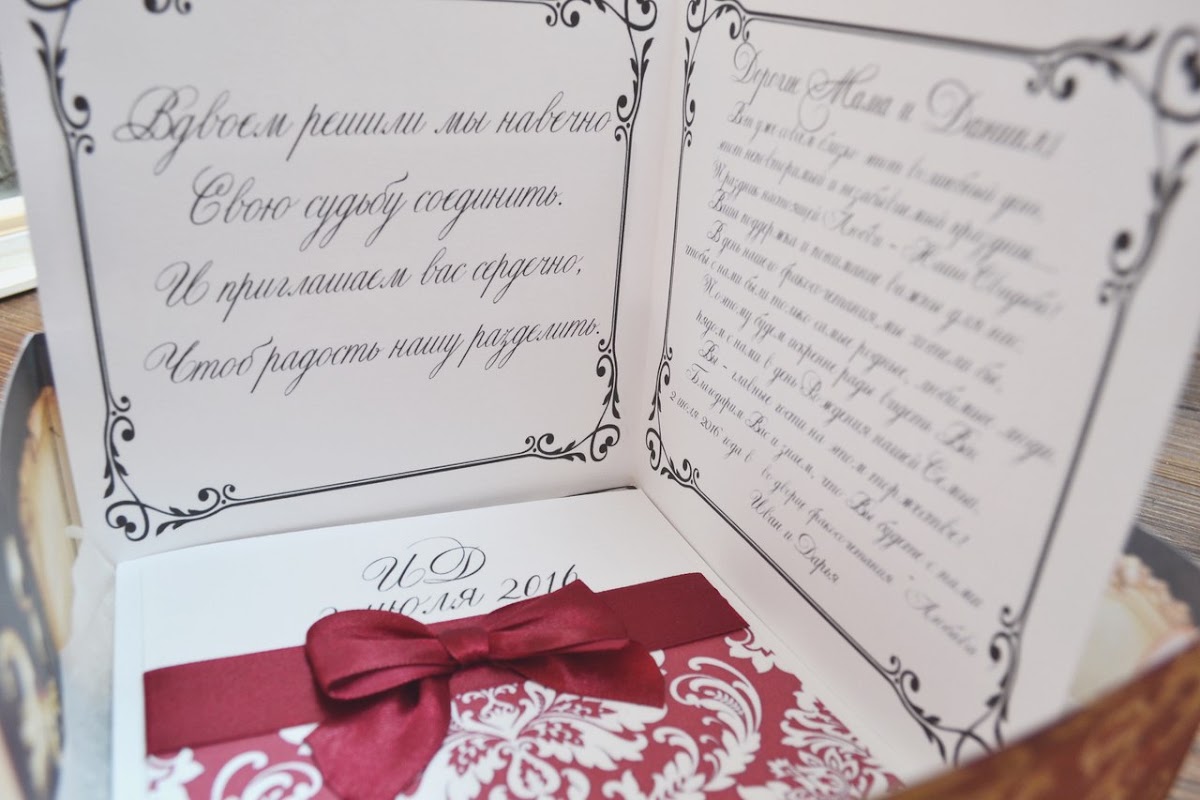 Вдвоем решили мы навечно
Свою судьбу соединить.
И приглашаем вас сердечно,
Чтоб радость нашу разделить.
Дорогие Мама и Даниил!
Вот уже совсем близко этот волшебный день,
этот неповторимый и незабываемый праздник...
Праздник настоящей Любви - Наша Свадьба!
Ваша поддержка и понимание важны для нас.
В день нашего бракосочетания мы хотели бы,
чтобы с нами были только самые родные, любимые люди.
Поэтому будем искренне рады видеть Вас
рядом с нами в день Рождения нашей Семьи.
Вы - главные гости на этом торжестве!
Благодарим Вас и знаем, что Вы будете с нами
2 июля 2016 года в во дворце бракосочетания "Любава
Иван и Дарья
И Д
2 июля 2016